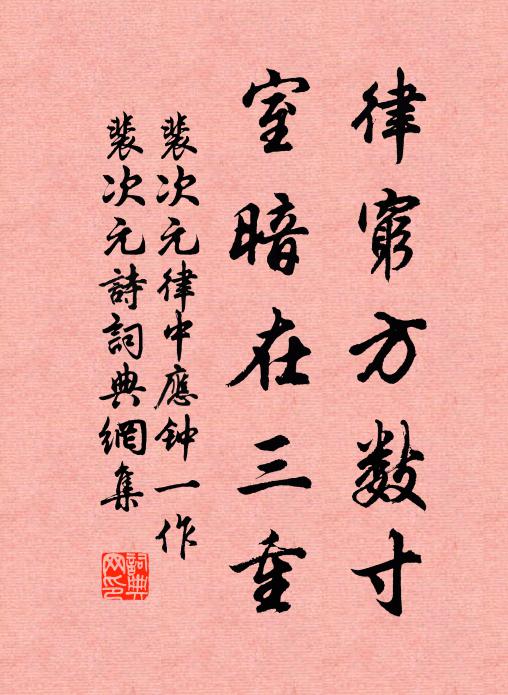 律窮方數寸
室暗在三重
裴次元律中應鐘一作
裴次元詩詞典網集
詞典
网印